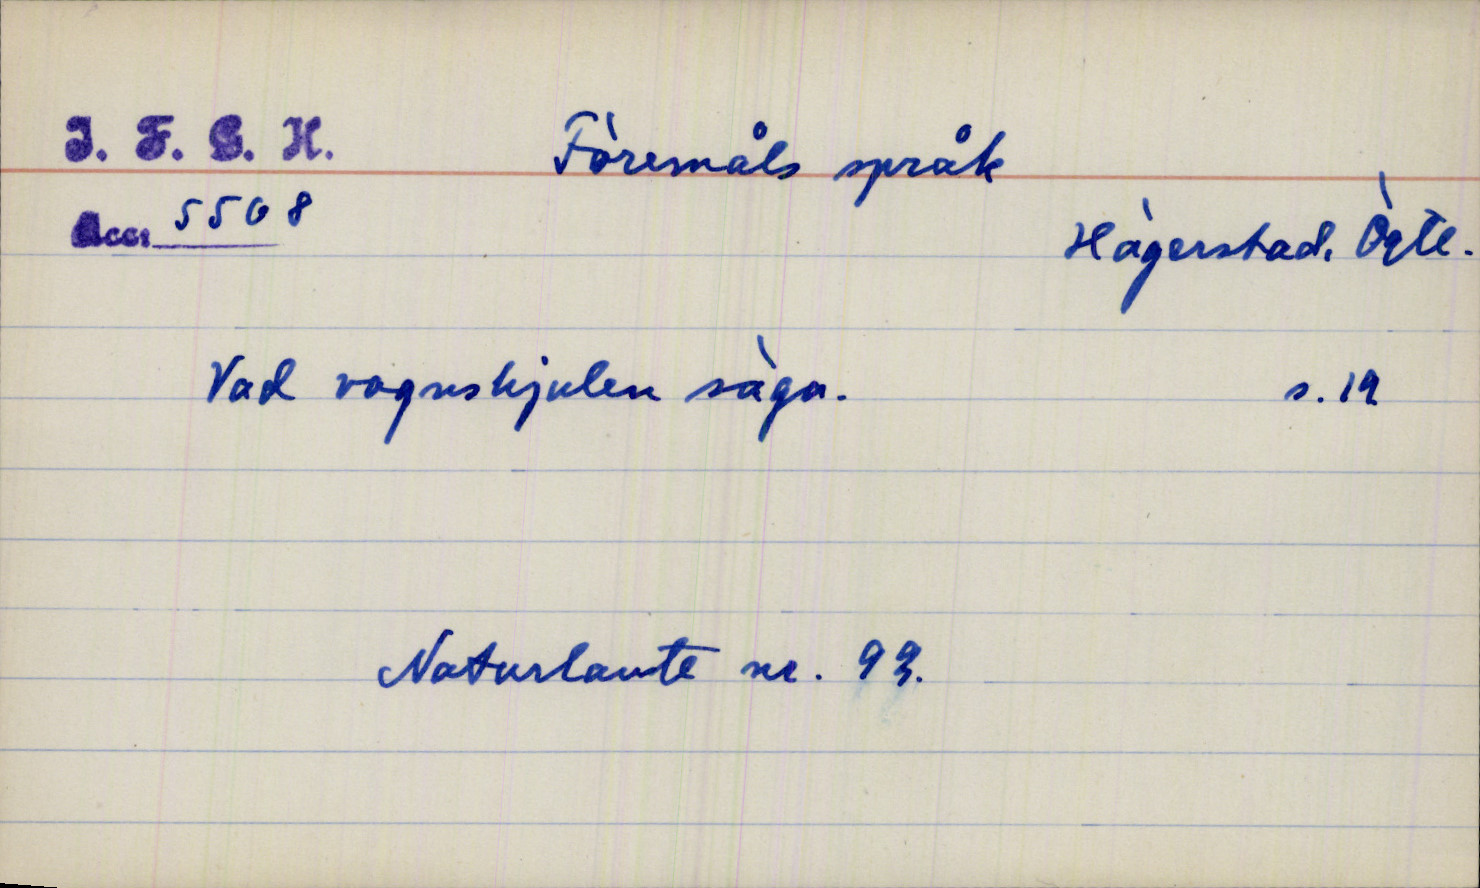 I. F. G. H.
Föremåls språk
Acc: 5508
Hägerstad, Ögtl.
Vad vagnshjulen säga. s. 12
Naturlaute nr. 93.